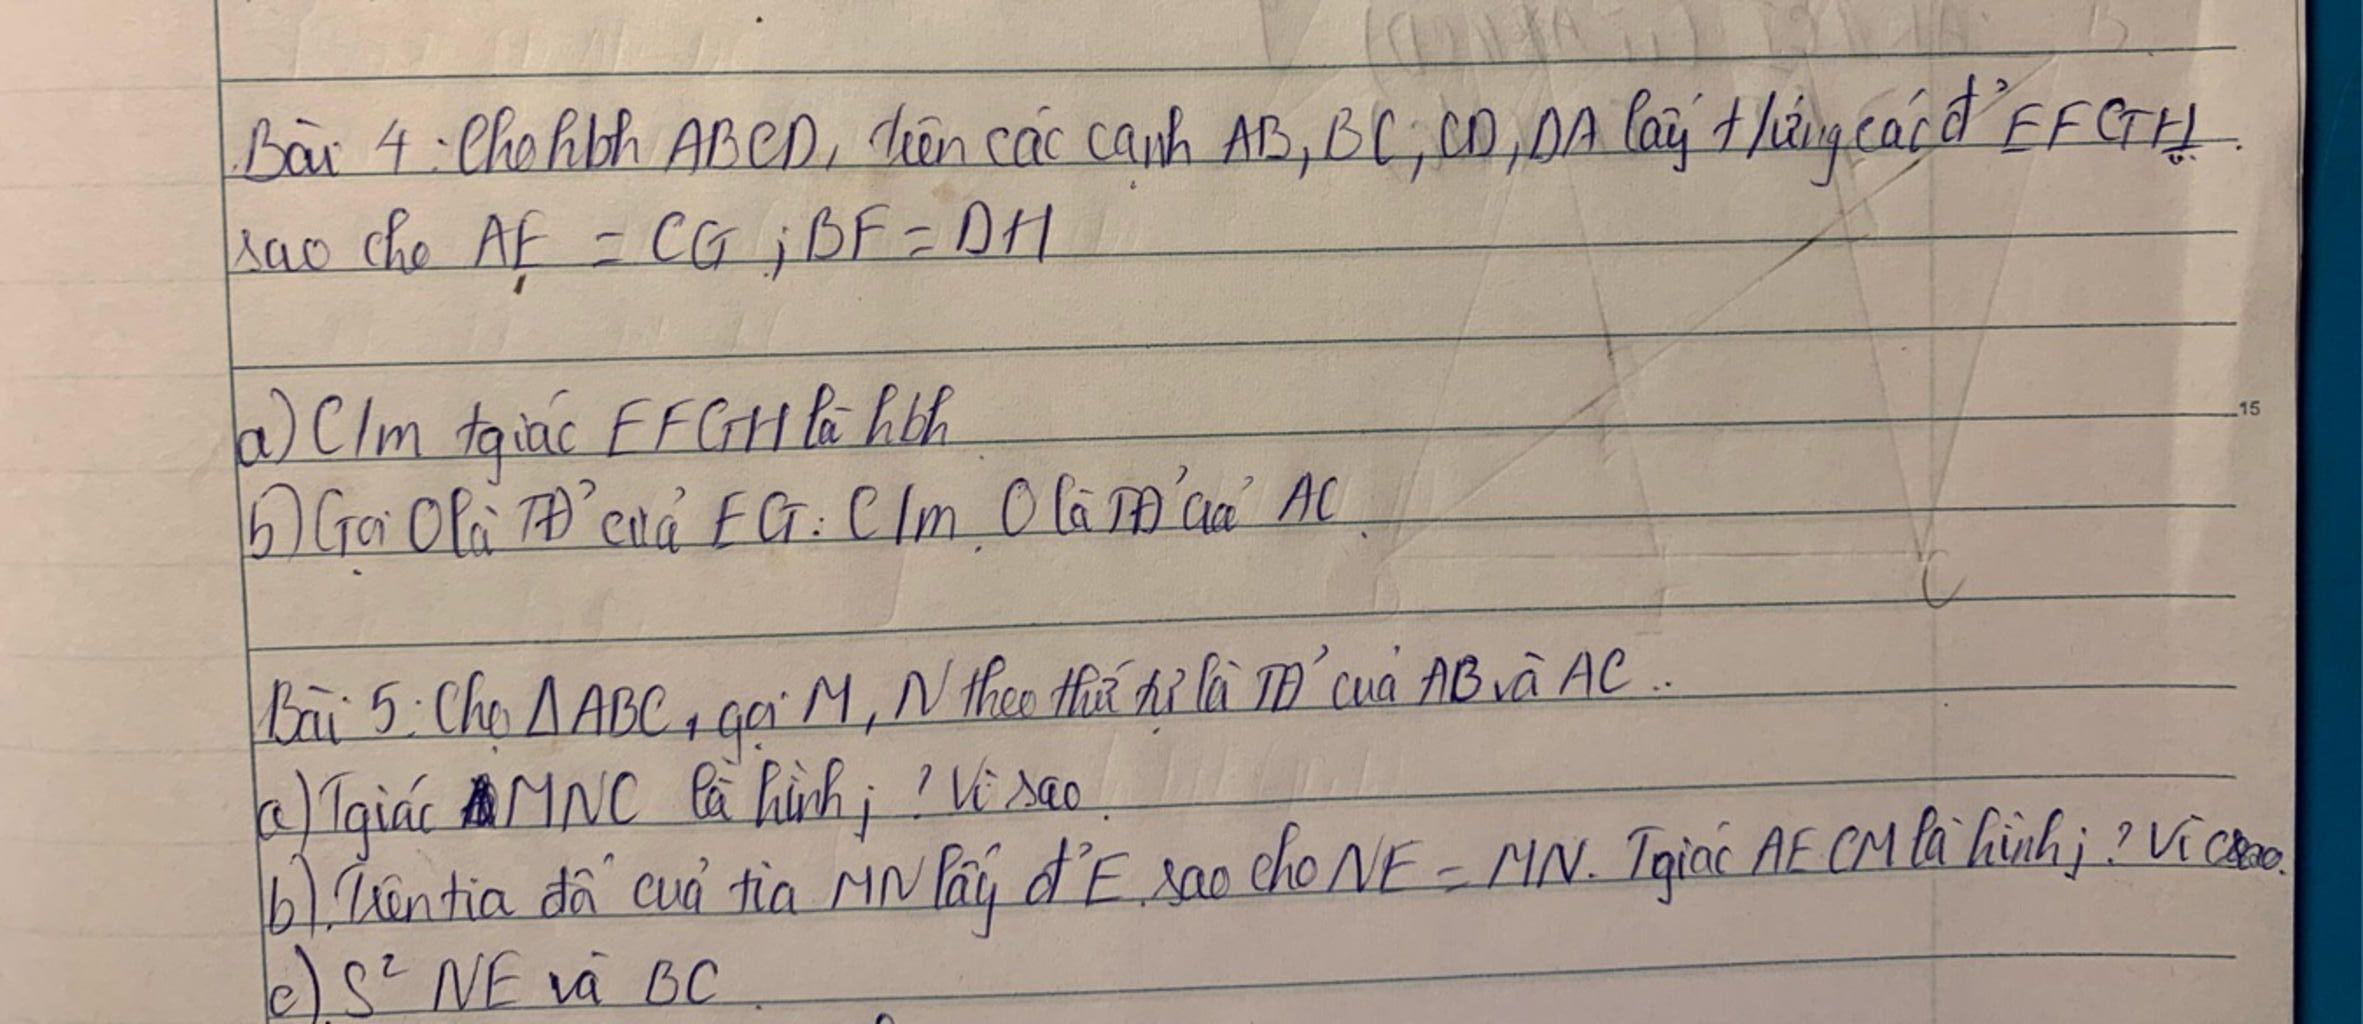 Bài 4 : Cho hbh ABCD, trên các cạnh AB, BC, CD, DA lấy t/ứng các đ' EFGH.
sao cho AE = CG ; BF = DH
15
a) C/m tgiác EFGH là hbh
b) Gọi O là TĐ' của EG. C/m O là TĐ' của AC.
C
Bài 5 : Cho ΔABC, gọi M, N theo thứ tự là TĐ' của AB và AC..
a) Tgiác BMNC là hình j ? Vì sao.
b). Trên tia đố của tia MN lấy đ' E sao cho NE = MN. Tgiác AECM là hình j ? Vì sao.
c) S² NE và BC.